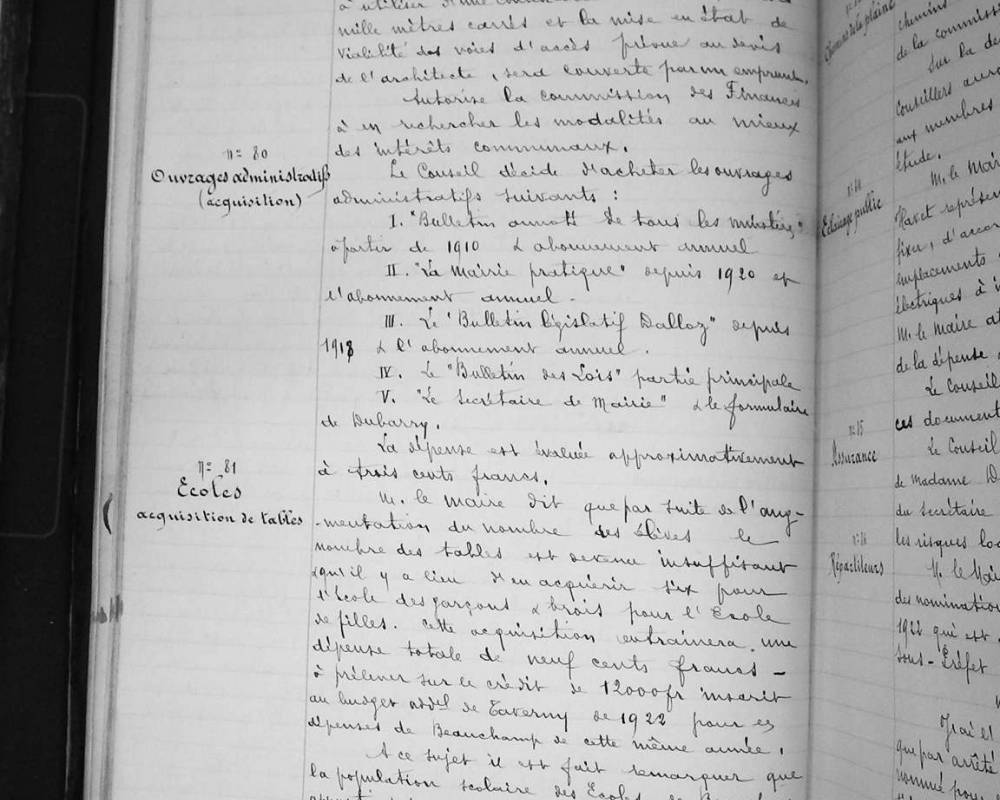 mille mètres carrés et la mise en état de
viabilité des voies d'accès prévue au devis
de l'architecte, sera couverte par un emprunt.
Autorise la commission des Finances
à en rechercher les modalités au mieux
des intérêts communaux.
n° 80
Ouvrages administratifs
(acquisition)
Le Conseil décide d'acheter les ouvrages
administratifs suivants :
I. "Bulletin annoté de tous les ministères"
à partir de 1910 & abonnement annuel
II. "La Mairie pratique" depuis 1920 et
l'abonnement annuel.
III. Le "Bulletin législatif Dalloz" depuis
1918 & l'abonnement annuel.
IV. Le "Bulletin des Lois" partie principale
V. "Le Secrétaire de Mairie" & le formulaire
de Dubarry.
La dépense est évaluée approximativement
à trois cents francs.
n° 81
Ecoles
acquisition de tables
M. le Maire dit que par suite de l'aug-
-mentation du nombre des élèves le
nombre des tables est devenu insuffisant
& qu'il y a lieu d'en acquérir six pour
l'école des garçons & trois pour l'Ecole
de filles. Cette acquisition entrainera une
dépense totale de neuf cents francs -
à prélever sur le crédit de 12000fr inscrit
au budget addel de Taverny de 1922 pour les
dépenses de Beauchamp de cette même année.
A ce sujet il est fait remarquer que
la population scolaire des Ecoles de
Chemins de la plaine
chemins
de la commiss
Sur la de
Conseillers
aux membres
étude.
n° 14
Eclairage public
M. le Mai
Havet représen
fixer, d'accor
emplacements
électriques à
M. le Maire
de la dépense
Le Conseil
ces document
n° 15
Assurance
Le Conseil
de Madame
du Secrétaire
les risques loc
n° 16
Répartiteurs
M. le Mai
des nomination
1922 qui est
Sous-Préfet
que par arrêté
nommé pour